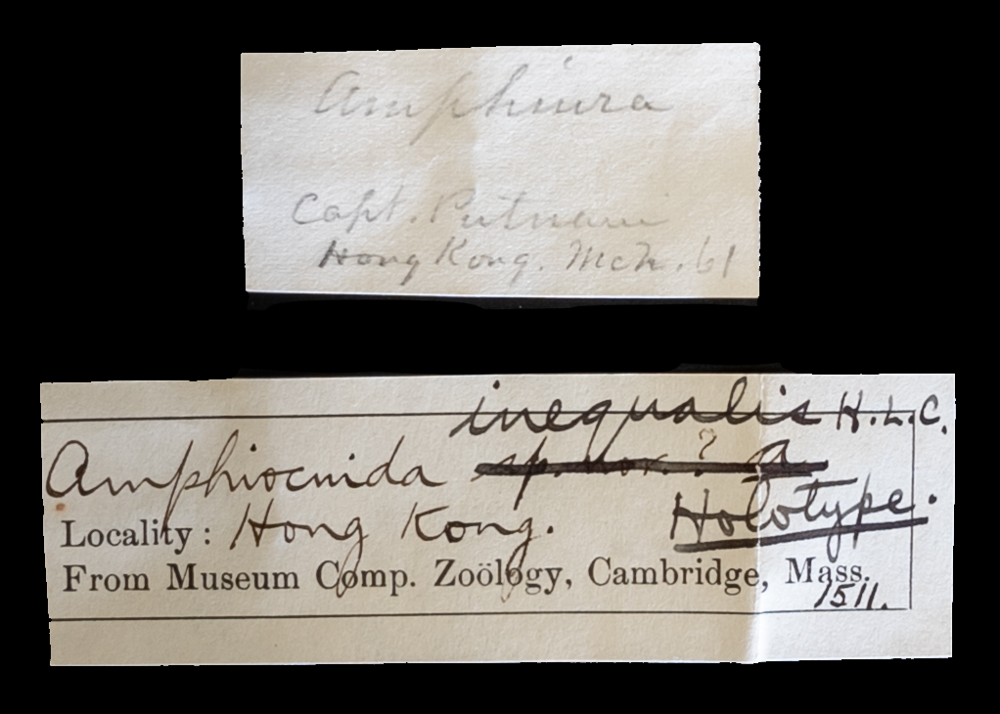 Amphiura
Capt. Putnam
Hong Kong. Mch. 61
inequalis H.L.C.
Amphiocnida sp. nov. ? a
Holotype.
Locality: Hong Kong.
From Museum Comp. Zoölogy, Cambridge, Mass.
1511.